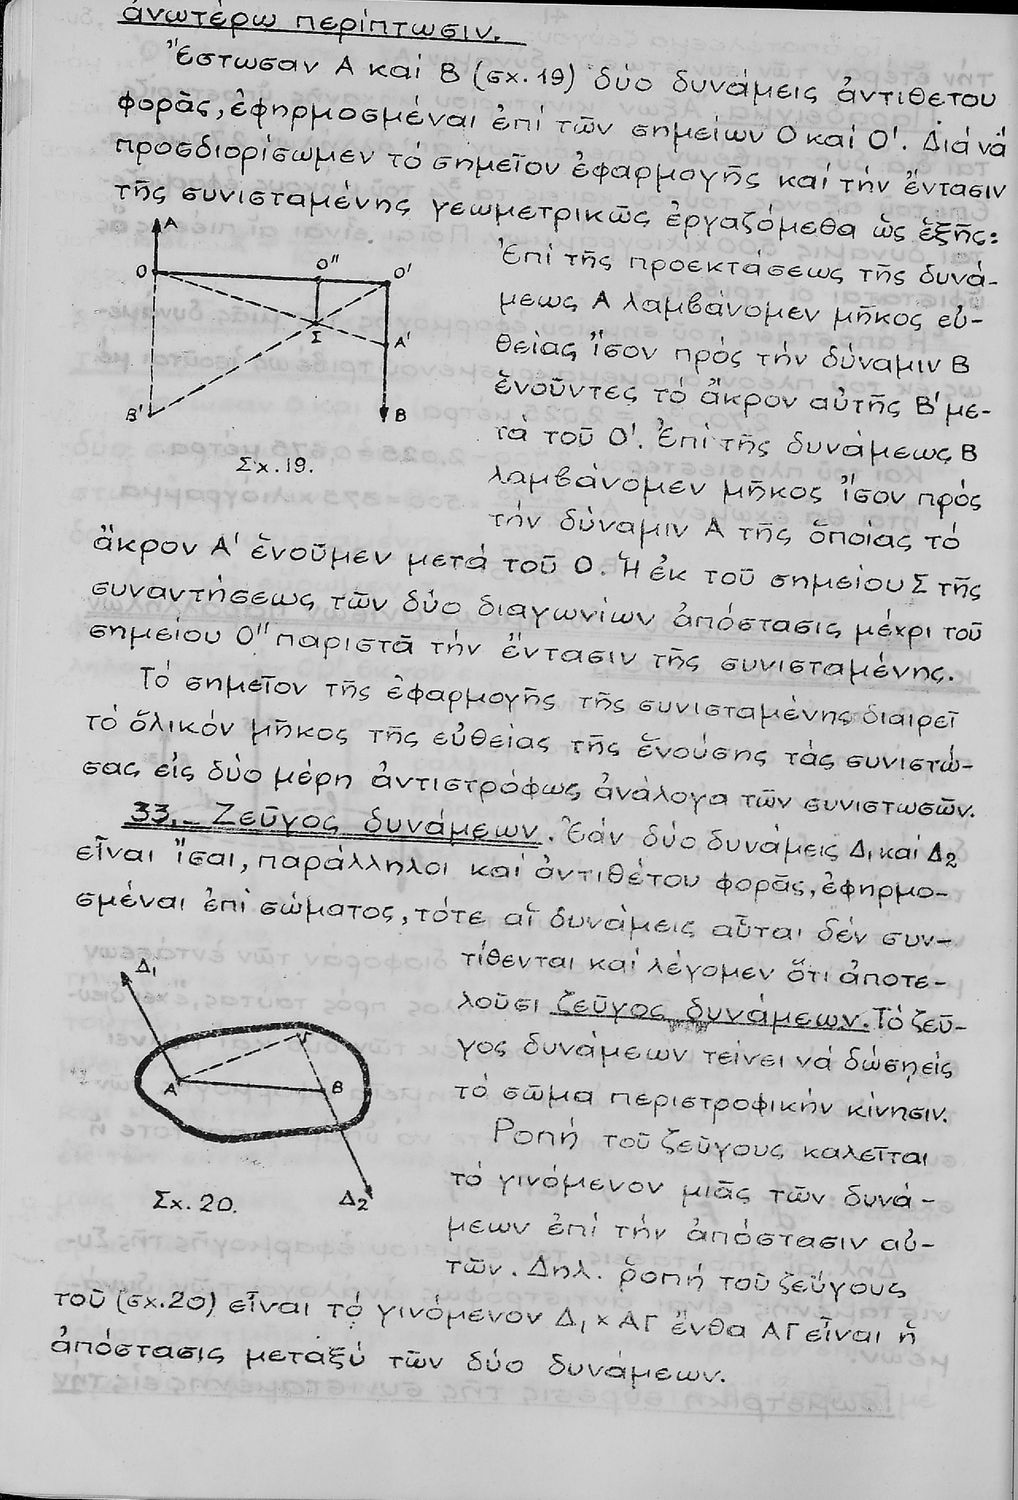 ἀνωτέρω περίπτωσιν.
Ἔστωσαν Α καί Β (σχ. 19) δύο δυνάμεις ἀντιθέτου
φορᾶς, ἐφηρμοσμέναι ἐπί τῶν σημείων Ο καί Ο'. Διά νά
προσδιορίσωμεν τό σημεῖον ἐφαρμογῆς καί τήν ἔντασιν
τῆς συνισταμένης γεωμετρικῶς ἐργαζόμεθα ὡς ἑξῆς:
Α
Ο
Ο"
Ο'
Σ
Α'
Β'
Β
Σχ. 19.
Ἐπί τῆς προεκτάσεως τῆς δυνά-
μεως Α λαμβάνομεν μῆκος εὐ-
θείας ἴσον πρός τήν δύναμιν Β
ἑνοῦντες τό ἄκρον αὐτῆς Β' με-
τά τοῦ Ο'. Ἐπί τῆς δυνάμεως Β
λαμβάνομεν μῆκος ἴσον πρός
τήν δύναμιν Α τῆς ὁποίας τό
ἄκρον Α' ἑνοῦμεν μετά τοῦ Ο. Ἡ ἐκ τοῦ σημείου Σ τῆς
συναντήσεως τῶν δύο διαγωνίων ἀπόστασις μέχρι τοῦ
σημείου Ο" παριστᾶ τήν ἔντασιν τῆς συνισταμένης.
Τό σημεῖον τῆς ἐφαρμογῆς τῆς συνισταμένης διαιρεῖ
τό ὁλικόν μῆκος τῆς εὐθείας τῆς ἑνούσης τάς συνιστώ-
σας εἰς δύο μέρη ἀντιστρόφως ἀνάλογα τῶν συνιστωσῶν.
33.- Ζεῦγος δυνάμεων. Ἐάν δύο δυνάμεις Δ₁ καί Δ₂
εἶναι ἴσαι, παράλληλοι καί ἀντιθέτου φορᾶς, ἐφηρμο-
σμέναι ἐπί σώματος, τότε αἱ δυνάμεις αὗται δέν συν-
τίθενται καί λέγομεν ὅτι ἀποτε-
λοῦσι ζεῦγος δυνάμεων. Τό ζεῦ-
γος δυνάμεων τείνει νά δώσῃ εἰς
τό σῶμα περιστροφικήν κίνησιν.
Δ₁
Α
Β
Δ₂
Σχ. 20.
Ροπή τοῦ ζεύγους καλεῖται
τό γινόμενον μιᾶς τῶν δυνά-
μεων ἐπί τήν ἀπόστασιν αὐ-
τῶν. Δηλ. ῥοπή τοῦ ζεύγους
τοῦ (σχ. 20) εἶναι τό γινόμενον Δ₁ × ΑΓ ἔνθα ΑΓ εἶναι ἡ
ἀπόστασις μεταξύ τῶν δύο δυνάμεων.